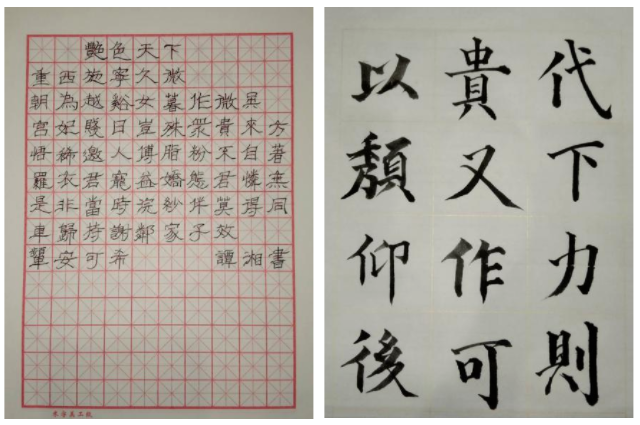 艷色天下
重西施寧久微
朝為越谿女暮作微吳
宮妃賤日豈殊衆貴來方
悟稀邀人傅脂粉不自著
羅衣君寵益嬌態君憐無
是非當時浣紗伴莫得同
車歸持謝鄰家子效
顰安可希 譚湘書
代下力則
貴又作可
以頽仰後